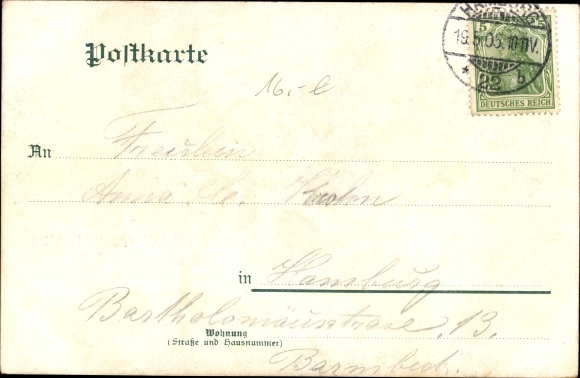 Postkarte
HAMBURG
19.5.05. 10-11V.
* 22 b
5
DEUTSCHES REICH
16.-l
An Fräulein
Anna
in Hamburg
Bartholomäusstrasse, 13.
Wohnung
(Straße und Hausnummer)
Barmbeck.